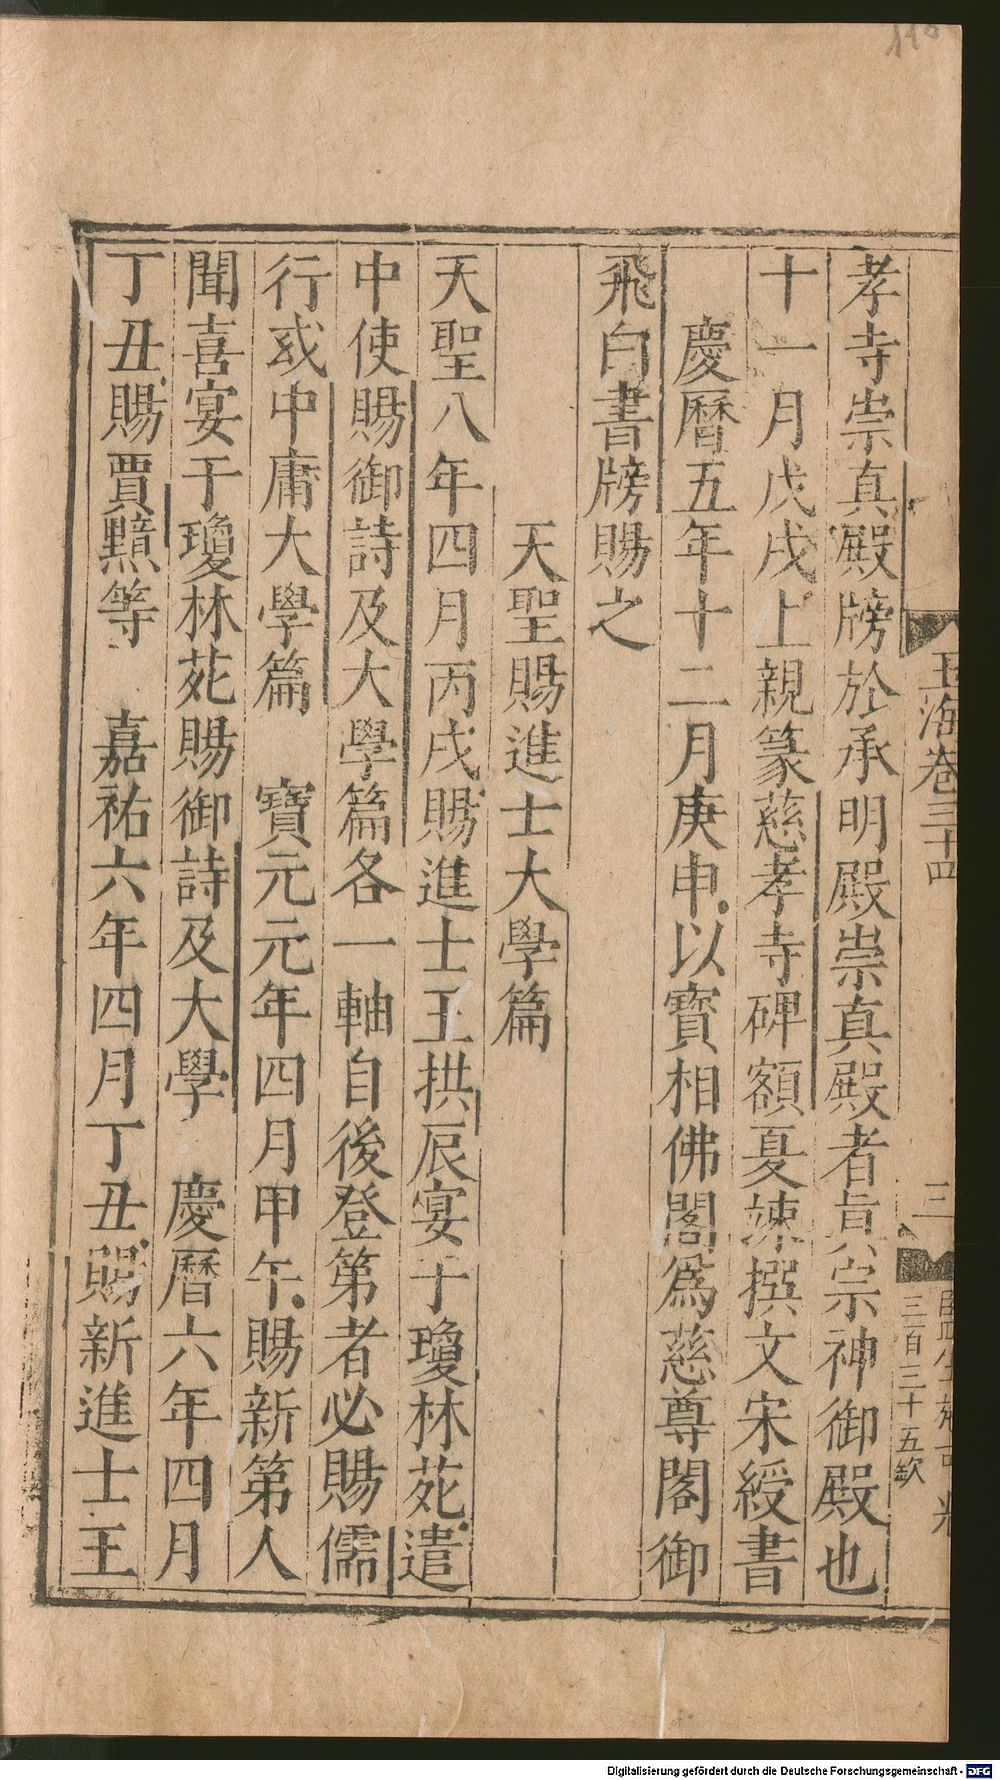 玉海卷三十四
三
三百三十五欽
孝寺崇真殿牓於承明殿崇真殿者真宗神御殿也
十一月戊戌上親篆慈孝寺碑額夏竦撰文宋綬書
慶曆五年十二月庚申以寶相佛閣爲慈尊閣御
飛白書牓賜之
天聖賜進士大學篇
天聖八年四月丙戌賜進士王拱辰宴于瓊林苑遣
中使賜御詩及大學篇各一軸自後登第者必賜儒
行或中庸大學篇　寶元元年四月甲午賜新第人
聞喜宴于瓊林苑賜御詩及大學　慶曆六年四月
丁丑賜賈黯等　嘉祐六年四月丁丑賜新進士王
Digitalisierung gefördert durch die Deutsche Forschungsgemeinschaft - DFG